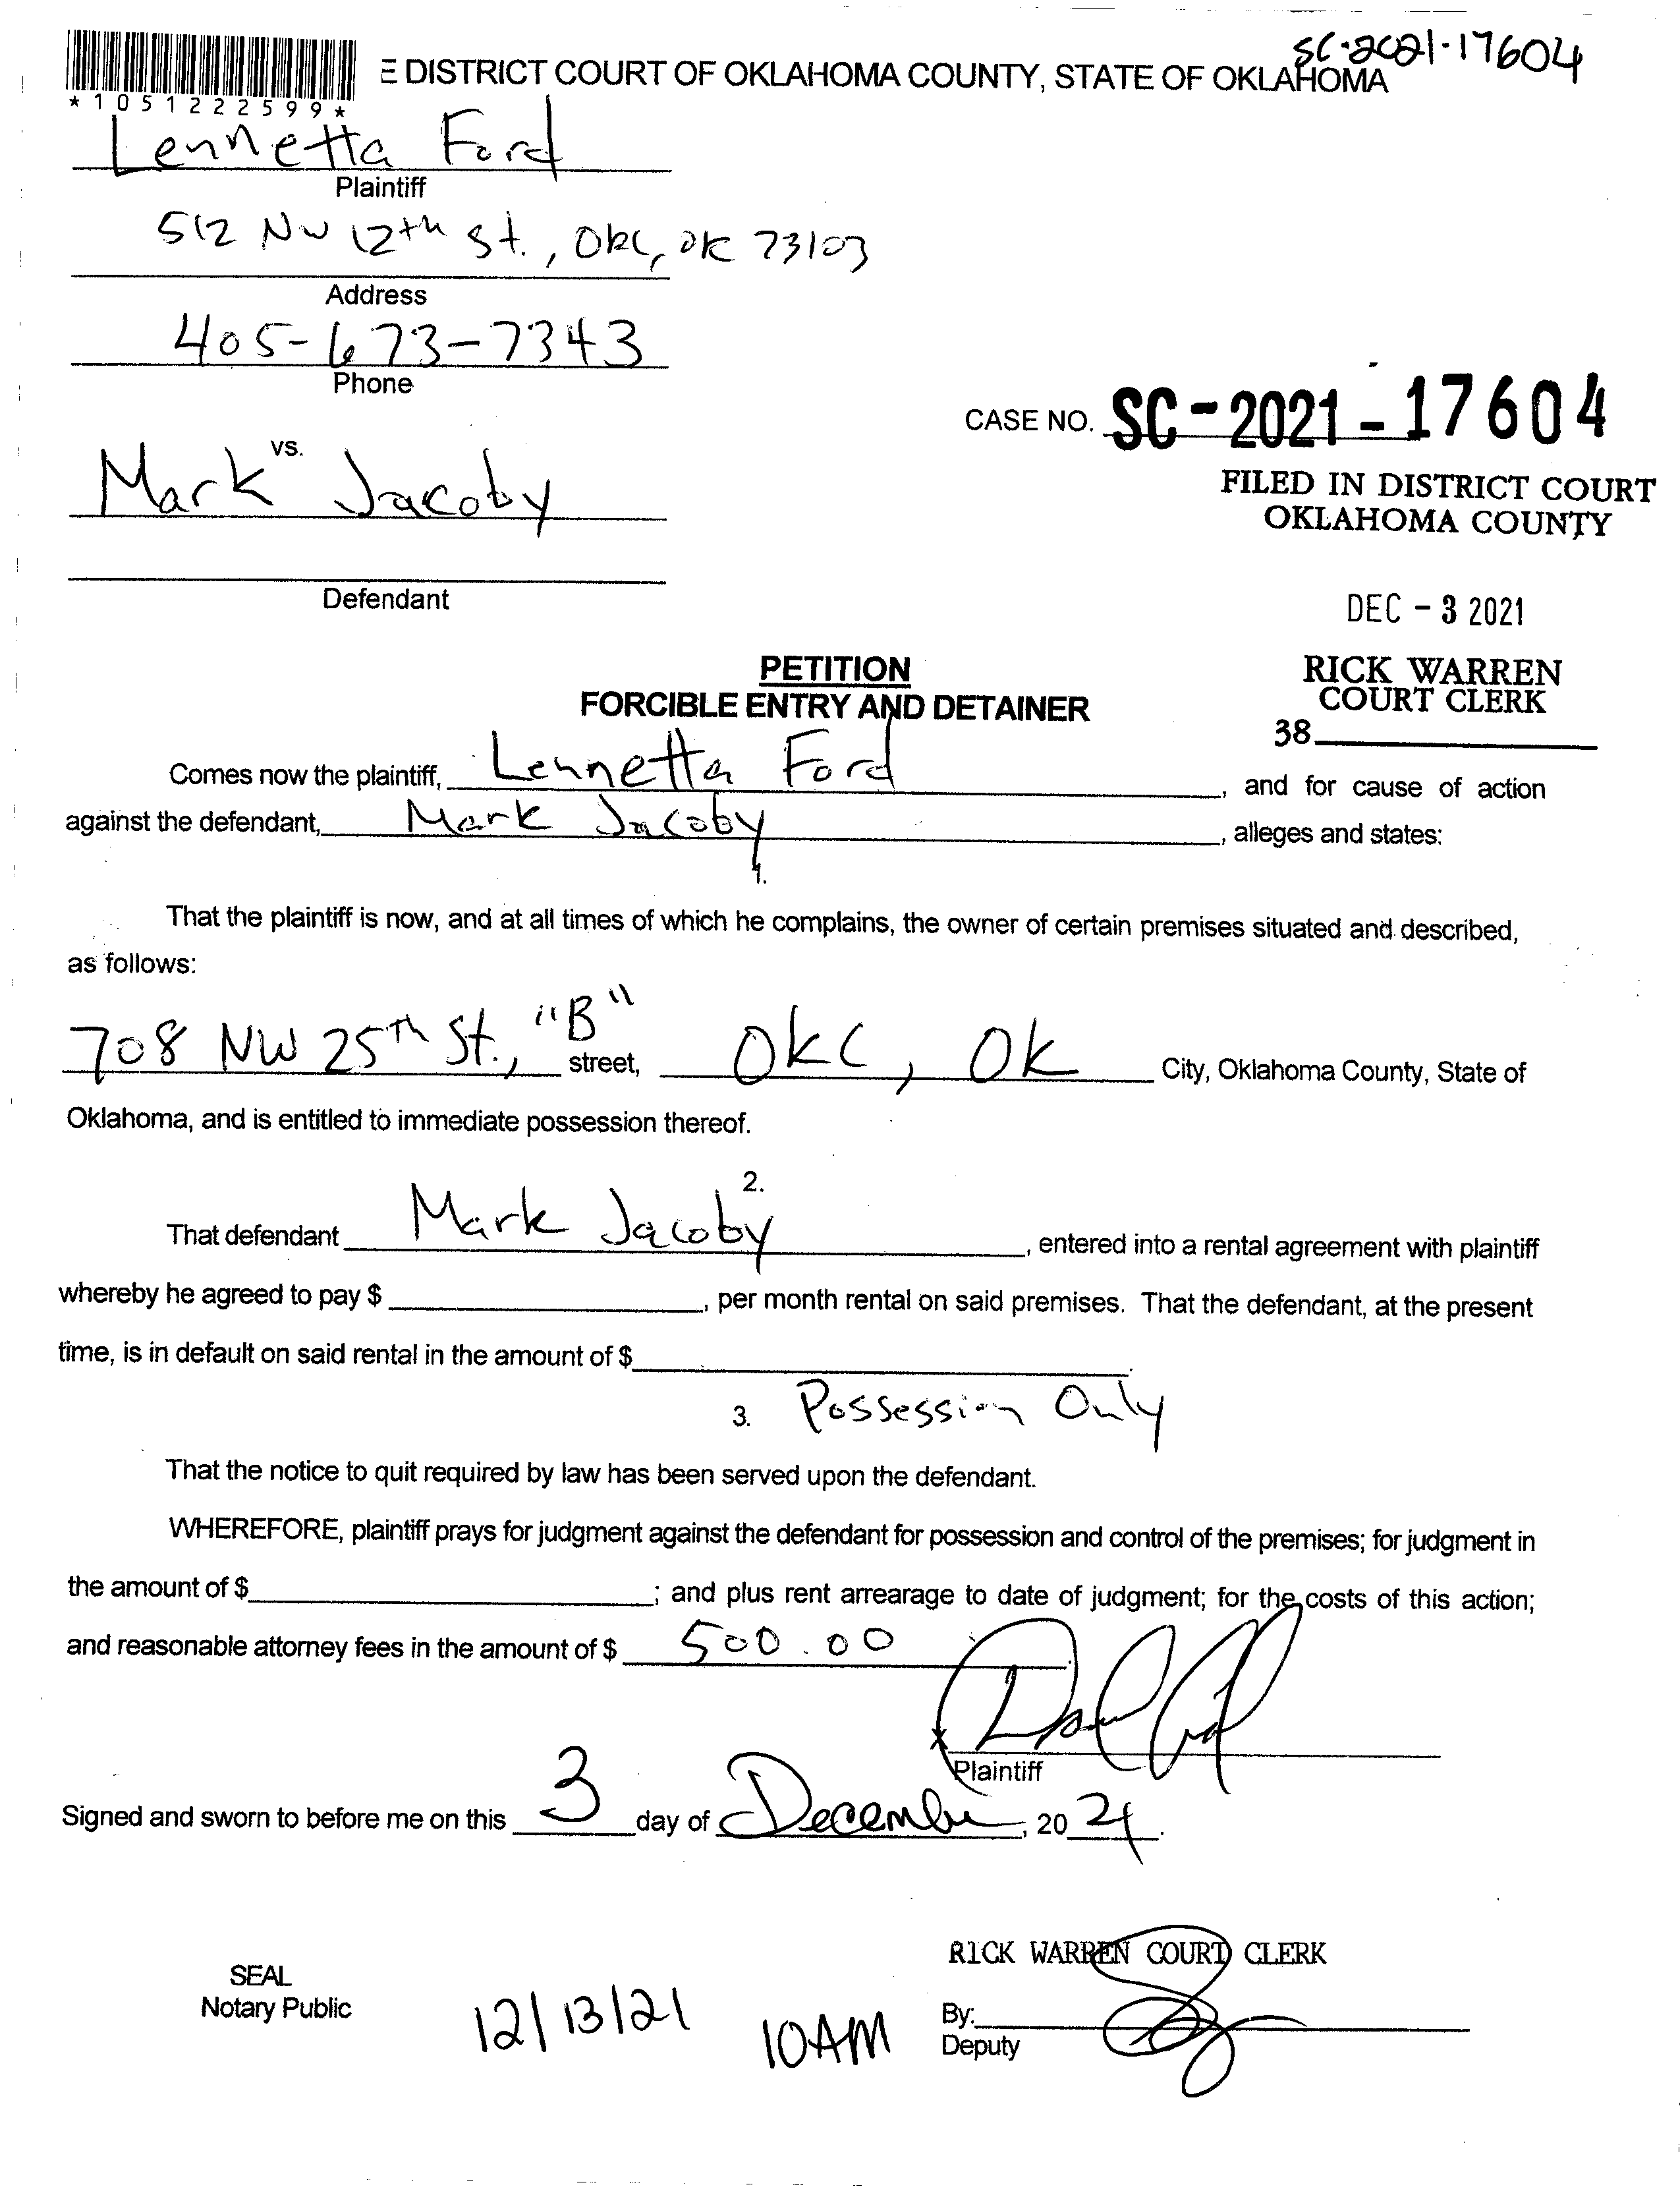 SC-2021-17604
E DISTRICT COURT OF OKLAHOMA COUNTY, STATE OF OKLAHOMA
*1051222599*
Lennetta Ford
Plaintiff
512 NW 12th St., OKC, OK 73103
Address
405-673-7343
Phone
CASE NO. SC-2021-17604
vs.
Mark Jacoby
FILED IN DISTRICT COURT
OKLAHOMA COUNTY
Defendant
DEC - 3 2021
PETITION
RICK WARREN
COURT CLERK
FORCIBLE ENTRY AND DETAINER
38
Comes now the plaintiff, Lennetta Ford, and for cause of action
against the defendant, Mark Jacoby, alleges and states:
1.
That the plaintiff is now, and at all times of which he complains, the owner of certain premises situated and described,
as follows:
708 NW 25th St., "B" street, OKC, OK City, Oklahoma County, State of
Oklahoma, and is entitled to immediate possession thereof.
2.
That defendant Mark Jacoby, entered into a rental agreement with plaintiff
whereby he agreed to pay $, per month rental on said premises. That the defendant, at the present
time, is in default on said rental in the amount of $.
3. Possession Only
That the notice to quit required by law has been served upon the defendant.
WHEREFORE, plaintiff prays for judgment against the defendant for possession and control of the premises; for judgment in
the amount of $; and plus rent arrearage to date of judgment; for the costs of this action;
and reasonable attorney fees in the amount of $ 500.00.
X
Plaintiff
Signed and sworn to before me on this 3 day of December, 20 21.
RICK WARREN COURT CLERK
SEAL
Notary Public
12/13/21 10AM
By:
Deputy